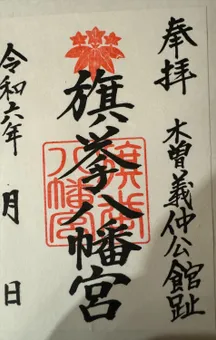 奉拝
木曽義仲公館趾
旗挙八幡宮
旗挙
八幡宮
令和六年　月　日